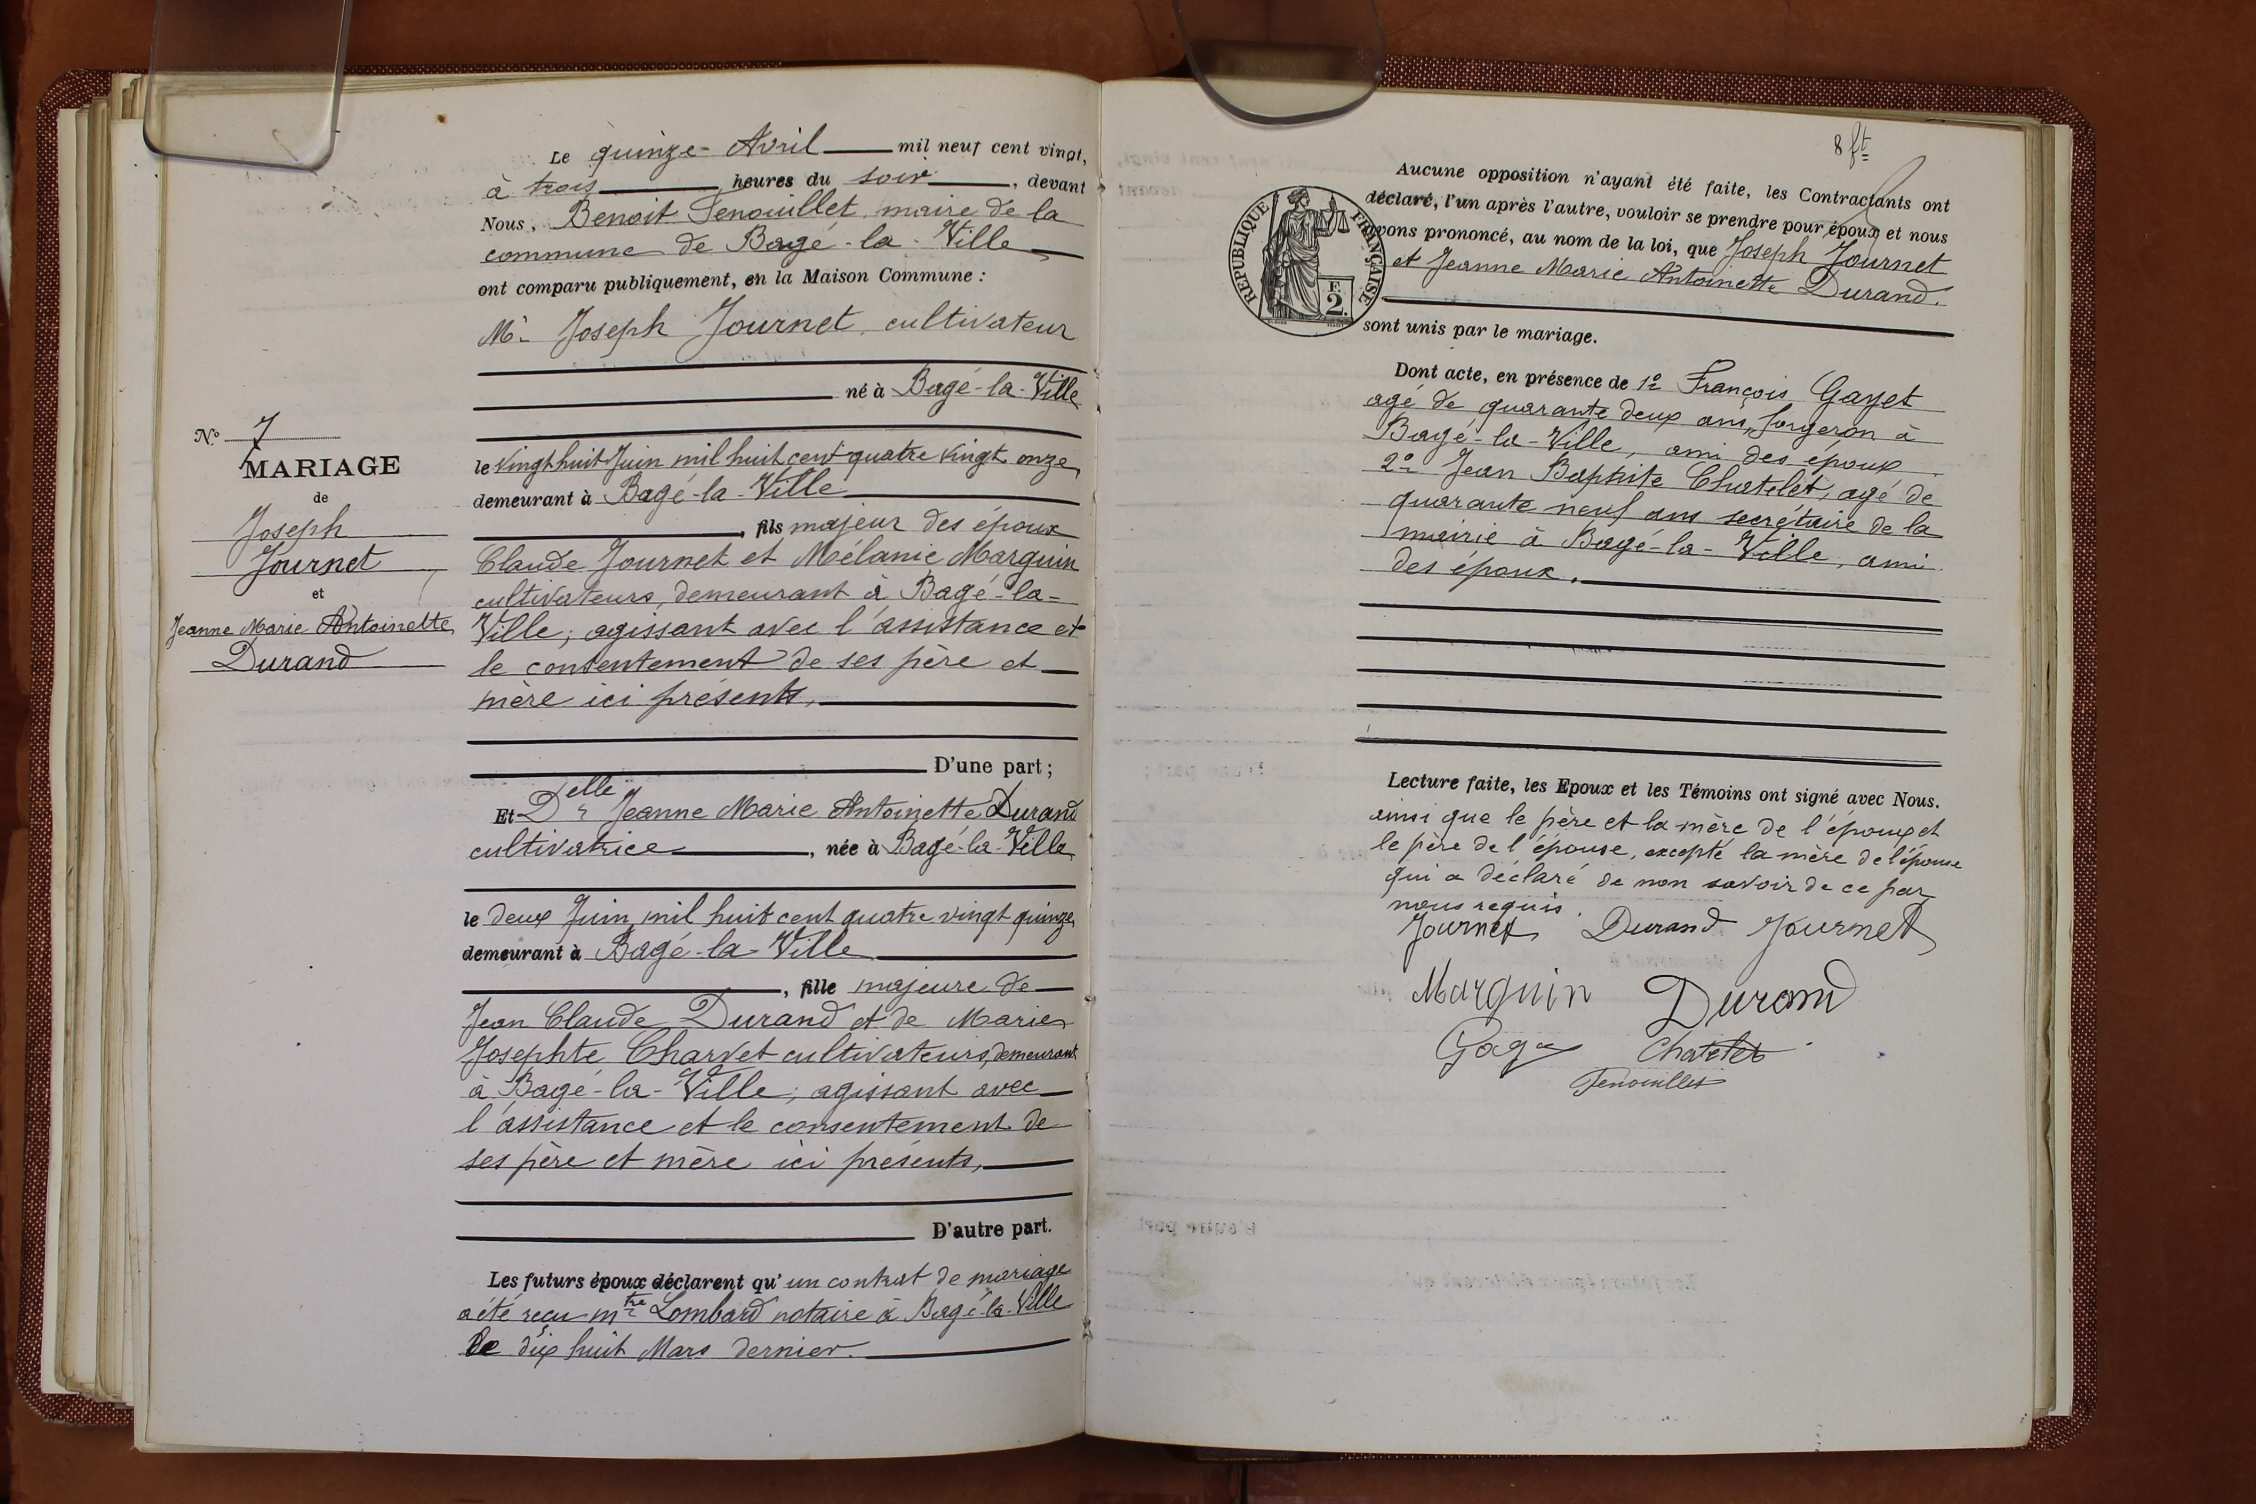 Le quinze Avril mil neuf cent vingt,
à trois heures du soir, devant
Nous, Benoit Fenouillet, maire de la
commune de Bagé-la-Ville
ont comparu publiquement, en la Maison Commune :
Mr Joseph Journet, cultivateur
né à Bagé-la-Ville
le vingt huit Juin mil huit cent quatre vingt onze
demeurant à Bagé-la-Ville
, fils majeur des époux
Claude Journet et Mélanie Marguin
cultivateurs, demeurant à Bagé-la-
Ville ; agissant avec l'assistance et
le consentement de ses père et
mère ici présents,
D'une part ;
Et Delle Jeanne Marie Antoinette Durand
cultivatrice, née à Bagé-la-Ville
le deux Juin mil huit cent quatre vingt quinze
demeurant à Bagé-la-Ville
, fille majeure de
Jean Claude Durand et de Marie
Josephte Charvet cultivateurs, demeurant
à Bagé-la-Ville ; agissant avec
l'assistance et le consentement de
ses père et mère ici présents,
D'autre part.
Les futurs époux déclarent qu'un contrat de mariage
a été reçu mtre Lombard notaire à Bagé-la-Ville
le dix huit Mars dernier.
N° 7
MARIAGE
de
Joseph
Journet
et
Jeanne Marie Antoinette
Durand
8 ft
Aucune opposition n'ayant été faite, les Contractants ont
déclaré, l'un après l'autre, vouloir se prendre pour époux et nous
avons prononcé, au nom de la loi, que Joseph Journet
et Jeanne Marie Antoinette Durand.
sont unis par le mariage.
RÉPUBLIQUE FRANÇAISE
F.
2.
Dont acte, en présence de 1° François Gayet
agé de quarante deux ans, forgeron à
Bagé-la-Ville, ami des époux
2° Jean Baptiste Chatelet, agé de
quarante neuf ans secrétaire de la
mairie à Bagé-la-Ville, ami
des époux.
Lecture faite, les Epoux et les Témoins ont signé avec Nous.
ainsi que le père et la mère de l'époux et
le père de l'épouse, excepté la mère de l'épouse
qui a déclaré de non savoir de ce par
nous requis.
Journet Durand Journet
Marguin Durand
Chatelet
Fenouillet